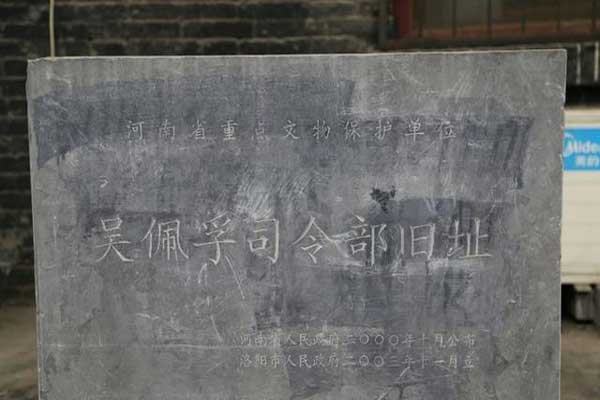 河南省重点文物保护单位
吴佩孚司令部旧址
河南省人民政府二〇〇〇年十月公布
洛阳市人民政府二〇〇三年十一月立
Midea
美的